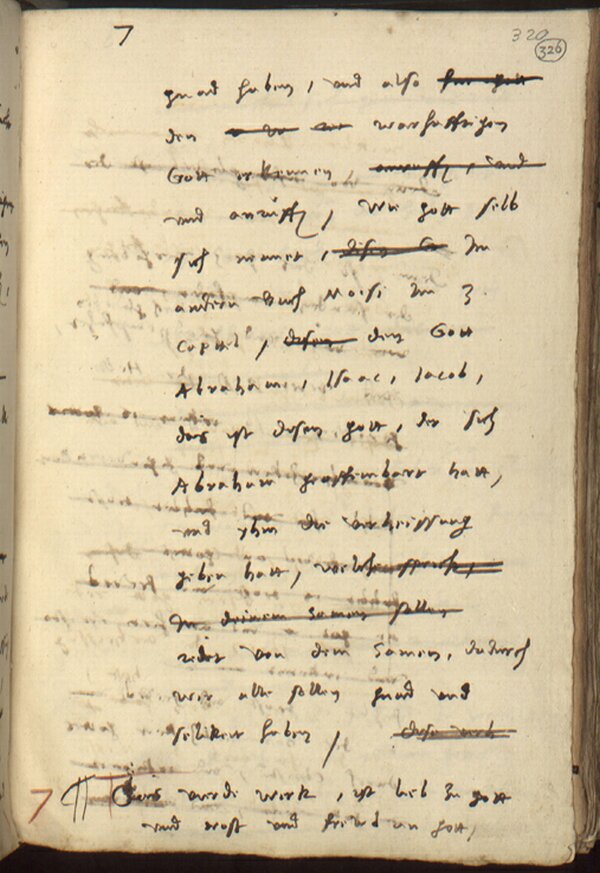 7
320
326
gnad haben, und also
den warhafftigen
Gott erkennen,
und anruffen, wie gott selb
sich nennet, Im
andern Buch Moisi Im 3
Capitel, den Gott
Abraham, Isaac, Iacob,
das ist disen gott, der sich
Abraham geoffenbart hatt,
und yhm die verheissung
geben hatt,
In deinem Samen sollen
redet von dem Samen, dadurch
wir alle sollen gnad und
selikeit haben,
7 werck, ist lieb zu gott
und trost und freud an gott,